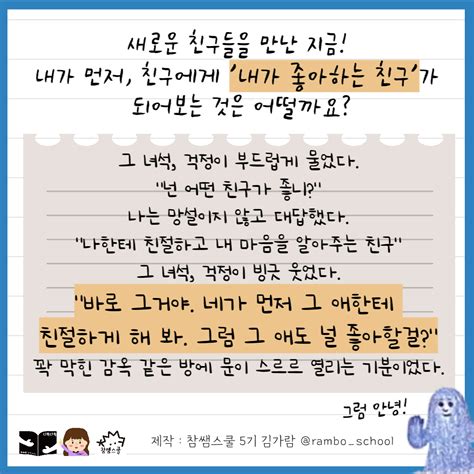 새로운 친구들을 만난 지금!
내가 먼저, 친구에게 '내가 좋아하는 친구'가
되어보는 것은 어떨까요?
그 녀석, 걱정이 부드럽게 물었다.
"넌 어떤 친구가 좋니?"
나는 망설이지 않고 대답했다.
"나한테 친절하고 내 마음을 알아주는 친구"
그 녀석, 걱정이 빙긋 웃었다.
"바로 그거야. 네가 먼저 그 애한테
친절하게 해 봐. 그럼 그 애도 널 좋아할걸?"
꽉 막힌 감옥 같은 방에 문이 스르르 열리는 기분이었다.
그럼 안녕!
참쌤스쿨
제작 : 참쌤스쿨 5기 김가람 @rambo_school